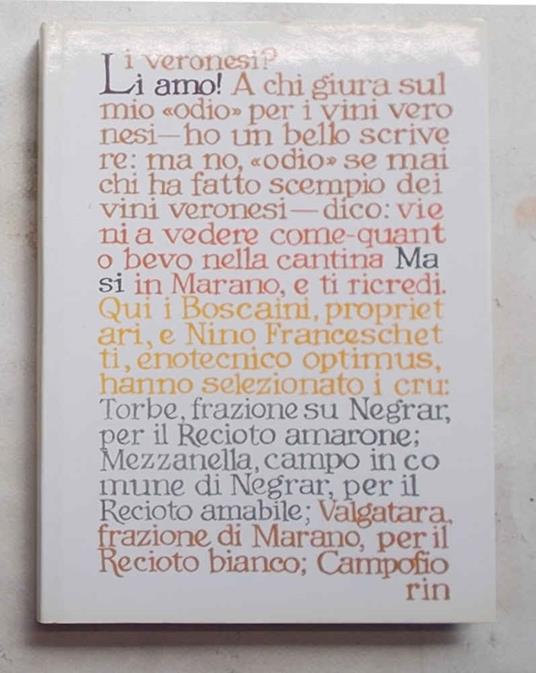 Li veronesi?
Li amo! A chi giura sul
mio «odio» per i vini vero
nesi—ho un bello scrive
re: ma no, «odio» se mai
chi ha fatto scempio dei
vini veronesi—dico: vie
ni a vedere come-quant
o bevo nella cantina Ma
si in Marano, e ti ricredi.
Qui i Boscaini, propriet
ari, e Nino Franceschet
ti, enotecnico optimus,
hanno selezionato i cru:
Torbe, frazione su Negrar,
per il Recioto amarone;
Mezzanella, campo in co
mune di Negrar, per il
Recioto amabile; Valgatara,
frazione di Marano, per il
Recioto bianco; Campofio
rin